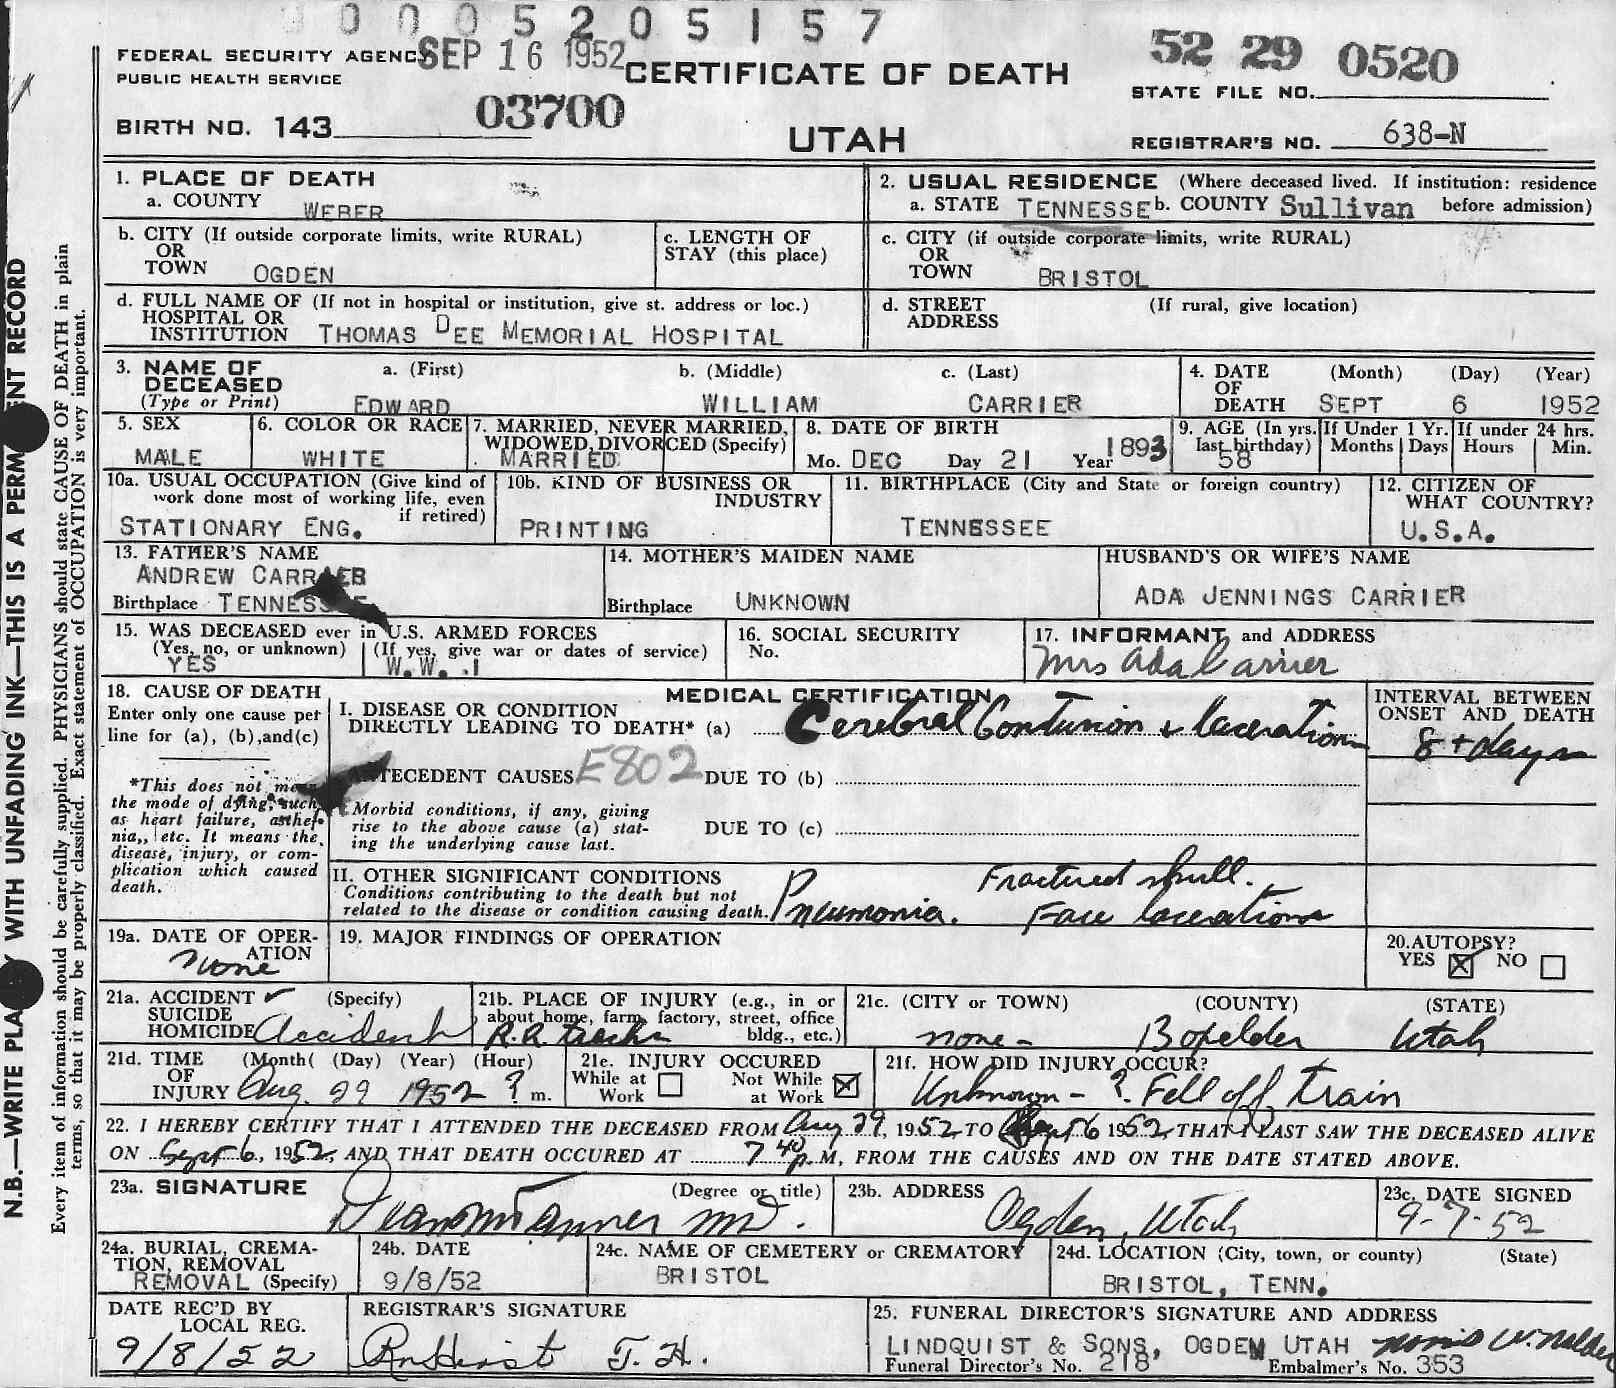 0005205157
FEDERAL SECURITY AGENCY SEP 16 1952 CERTIFICATE OF DEATH 52 29 0520
PUBLIC HEALTH SERVICE STATE FILE NO.
BIRTH NO. 143 03700 UTAH REGISTRAR'S NO. 638-N
1. PLACE OF DEATH
a. COUNTY WEBER
2. USUAL RESIDENCE (Where deceased lived. If institution: residence
a. STATE TENNESSE b. COUNTY Sullivan before admission)
b. CITY (If outside corporate limits, write RURAL)
OR
TOWN OGDEN
c. LENGTH OF
STAY (this place)
c. CITY (if outside corporate limits, write RURAL)
OR
TOWN BRISTOL
d. FULL NAME OF (If not in hospital or institution, give st. address or loc.)
HOSPITAL OR
INSTITUTION THOMAS DEE MEMORIAL HOSPITAL
d. STREET (If rural, give location)
ADDRESS
3. NAME OF a. (First) b. (Middle) c. (Last)
DECEASED
(Type or Print) EDWARD WILLIAM CARRIER
4. DATE (Month) (Day) (Year)
OF
DEATH SEPT 6 1952
5. SEX
MALE
6. COLOR OR RACE
WHITE
7. MARRIED, NEVER MARRIED,
WIDOWED, DIVORCED (Specify)
MARRIED
8. DATE OF BIRTH
Mo. DEC Day 21 Year 1893
9. AGE (In yrs.
last birthday)
58
If Under 1 Yr.
Months Days
If under 24 hrs.
Hours Min.
10a. USUAL OCCUPATION (Give kind of
work done most of working life, even
if retired)
STATIONARY ENG.
10b. KIND OF BUSINESS OR
INDUSTRY
PRINTING
11. BIRTHPLACE (City and State or foreign country)
TENNESSEE
12. CITIZEN OF
WHAT COUNTRY?
U.S.A.
13. FATHER'S NAME
ANDREW CARRIER
Birthplace TENNESSEE
14. MOTHER'S MAIDEN NAME
Birthplace UNKNOWN
HUSBAND'S OR WIFE'S NAME
ADA JENNINGS CARRIER
15. WAS DECEASED ever in U.S. ARMED FORCES
(Yes, no, or unknown) (If yes, give war or dates of service)
YES W.W. I
16. SOCIAL SECURITY
No.
17. INFORMANT and ADDRESS
Mrs Ada Carrier
18. CAUSE OF DEATH
Enter only one cause per
line for (a), (b), and(c)
*This does not mean
the mode of dying, such
as heart failure, asthe-
nia,, etc. It means the
disease, injury, or com-
plication which caused
death.
MEDICAL CERTIFICATION
I. DISEASE OR CONDITION
DIRECTLY LEADING TO DEATH* (a) Cerebral Contusion & laceration
INTERVAL BETWEEN
ONSET AND DEATH
8+days
ANTECEDENT CAUSES E802 DUE TO (b)
Morbid conditions, if any, giving
rise to the above cause (a) stat-
ing the underlying cause last.
DUE TO (c)
II. OTHER SIGNIFICANT CONDITIONS
Conditions contributing to the death but not
related to the disease or condition causing death.
Fractured skull.
Pneumonia. Face lacerations
19a. DATE OF OPER-
ATION
none
19. MAJOR FINDINGS OF OPERATION
20. AUTOPSY?
YES X NO
21a. ACCIDENT (Specify)
SUICIDE
HOMICIDE Accident
21b. PLACE OF INJURY (e.g., in or
about home, farm, factory, street, office
bldg., etc.)
R.R. tracks
21c. (CITY or TOWN) (COUNTY) (STATE)
none - Boxelder Utah
21d. TIME (Month( (Day) (Year) (Hour)
OF
INJURY Aug. 29 1952 ? m.
21e. INJURY OCCURED
While at Work Not While at Work X
21f. HOW DID INJURY OCCUR?
Unknown - ? Fell off train
22. I HEREBY CERTIFY THAT I ATTENDED THE DECEASED FROM Aug 29, 1952, TO Sept 6 1952, THAT I LAST SAW THE DECEASED ALIVE
ON Sept 6, 1952, AND THAT DEATH OCCURED AT 7 40 P.M, FROM THE CAUSES AND ON THE DATE STATED ABOVE.
23a. SIGNATURE (Degree or title)
Tanner MD.
23b. ADDRESS
Ogden, Utah
23c. DATE SIGNED
9-7-52
24a. BURIAL, CREMA-
TION, REMOVAL
REMOVAL (Specify)
24b. DATE
9/8/52
24c. NAME OF CEMETERY or CREMATORY
BRISTOL
24d. LOCATION (City, town, or county) (State)
BRISTOL, TENN.
DATE REC'D BY
LOCAL REG.
9/8/52
REGISTRAR'S SIGNATURE
J. H.
25. FUNERAL DIRECTOR'S SIGNATURE AND ADDRESS
LINDQUIST & SONS, OGDEN UTAH
Funeral Director's No. 218 Embalmer's No. 353
N.B.—WRITE PLA WITH UNFADING INK—THIS IS A PERM ENT RECORD
Every item of information should be carefully supplied. PHYSICIANS should state CAUSE OF DEATH in plain
terms, so that it may be properly classified. Exact statement of OCCUPATION is very important.